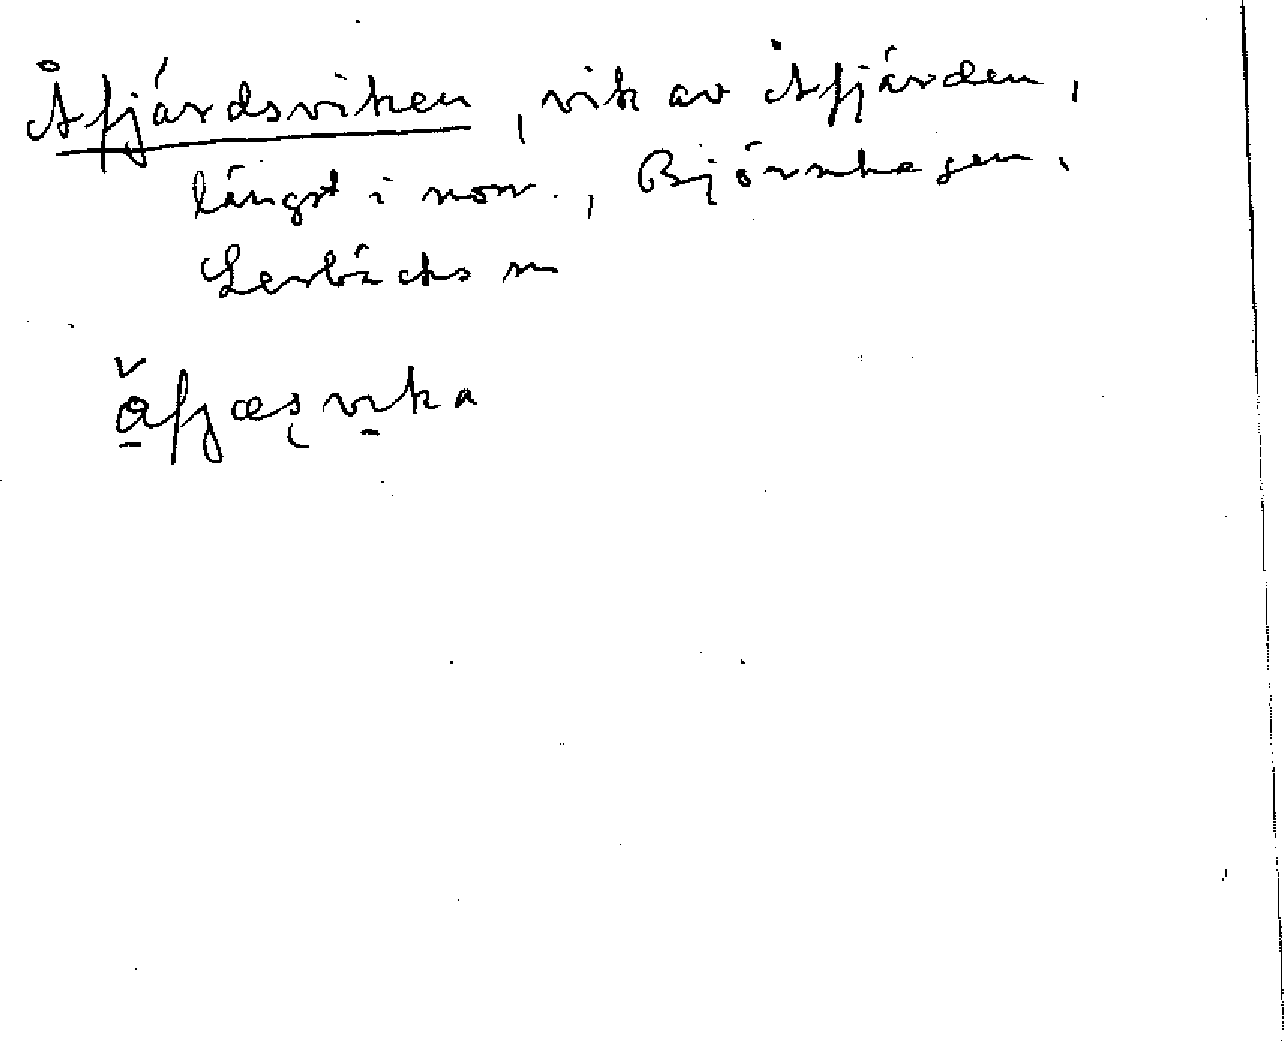 Åfjärdsviken, vik av Åfjärden,
längst i norr., Björnhagen,
Lerbäcks sn